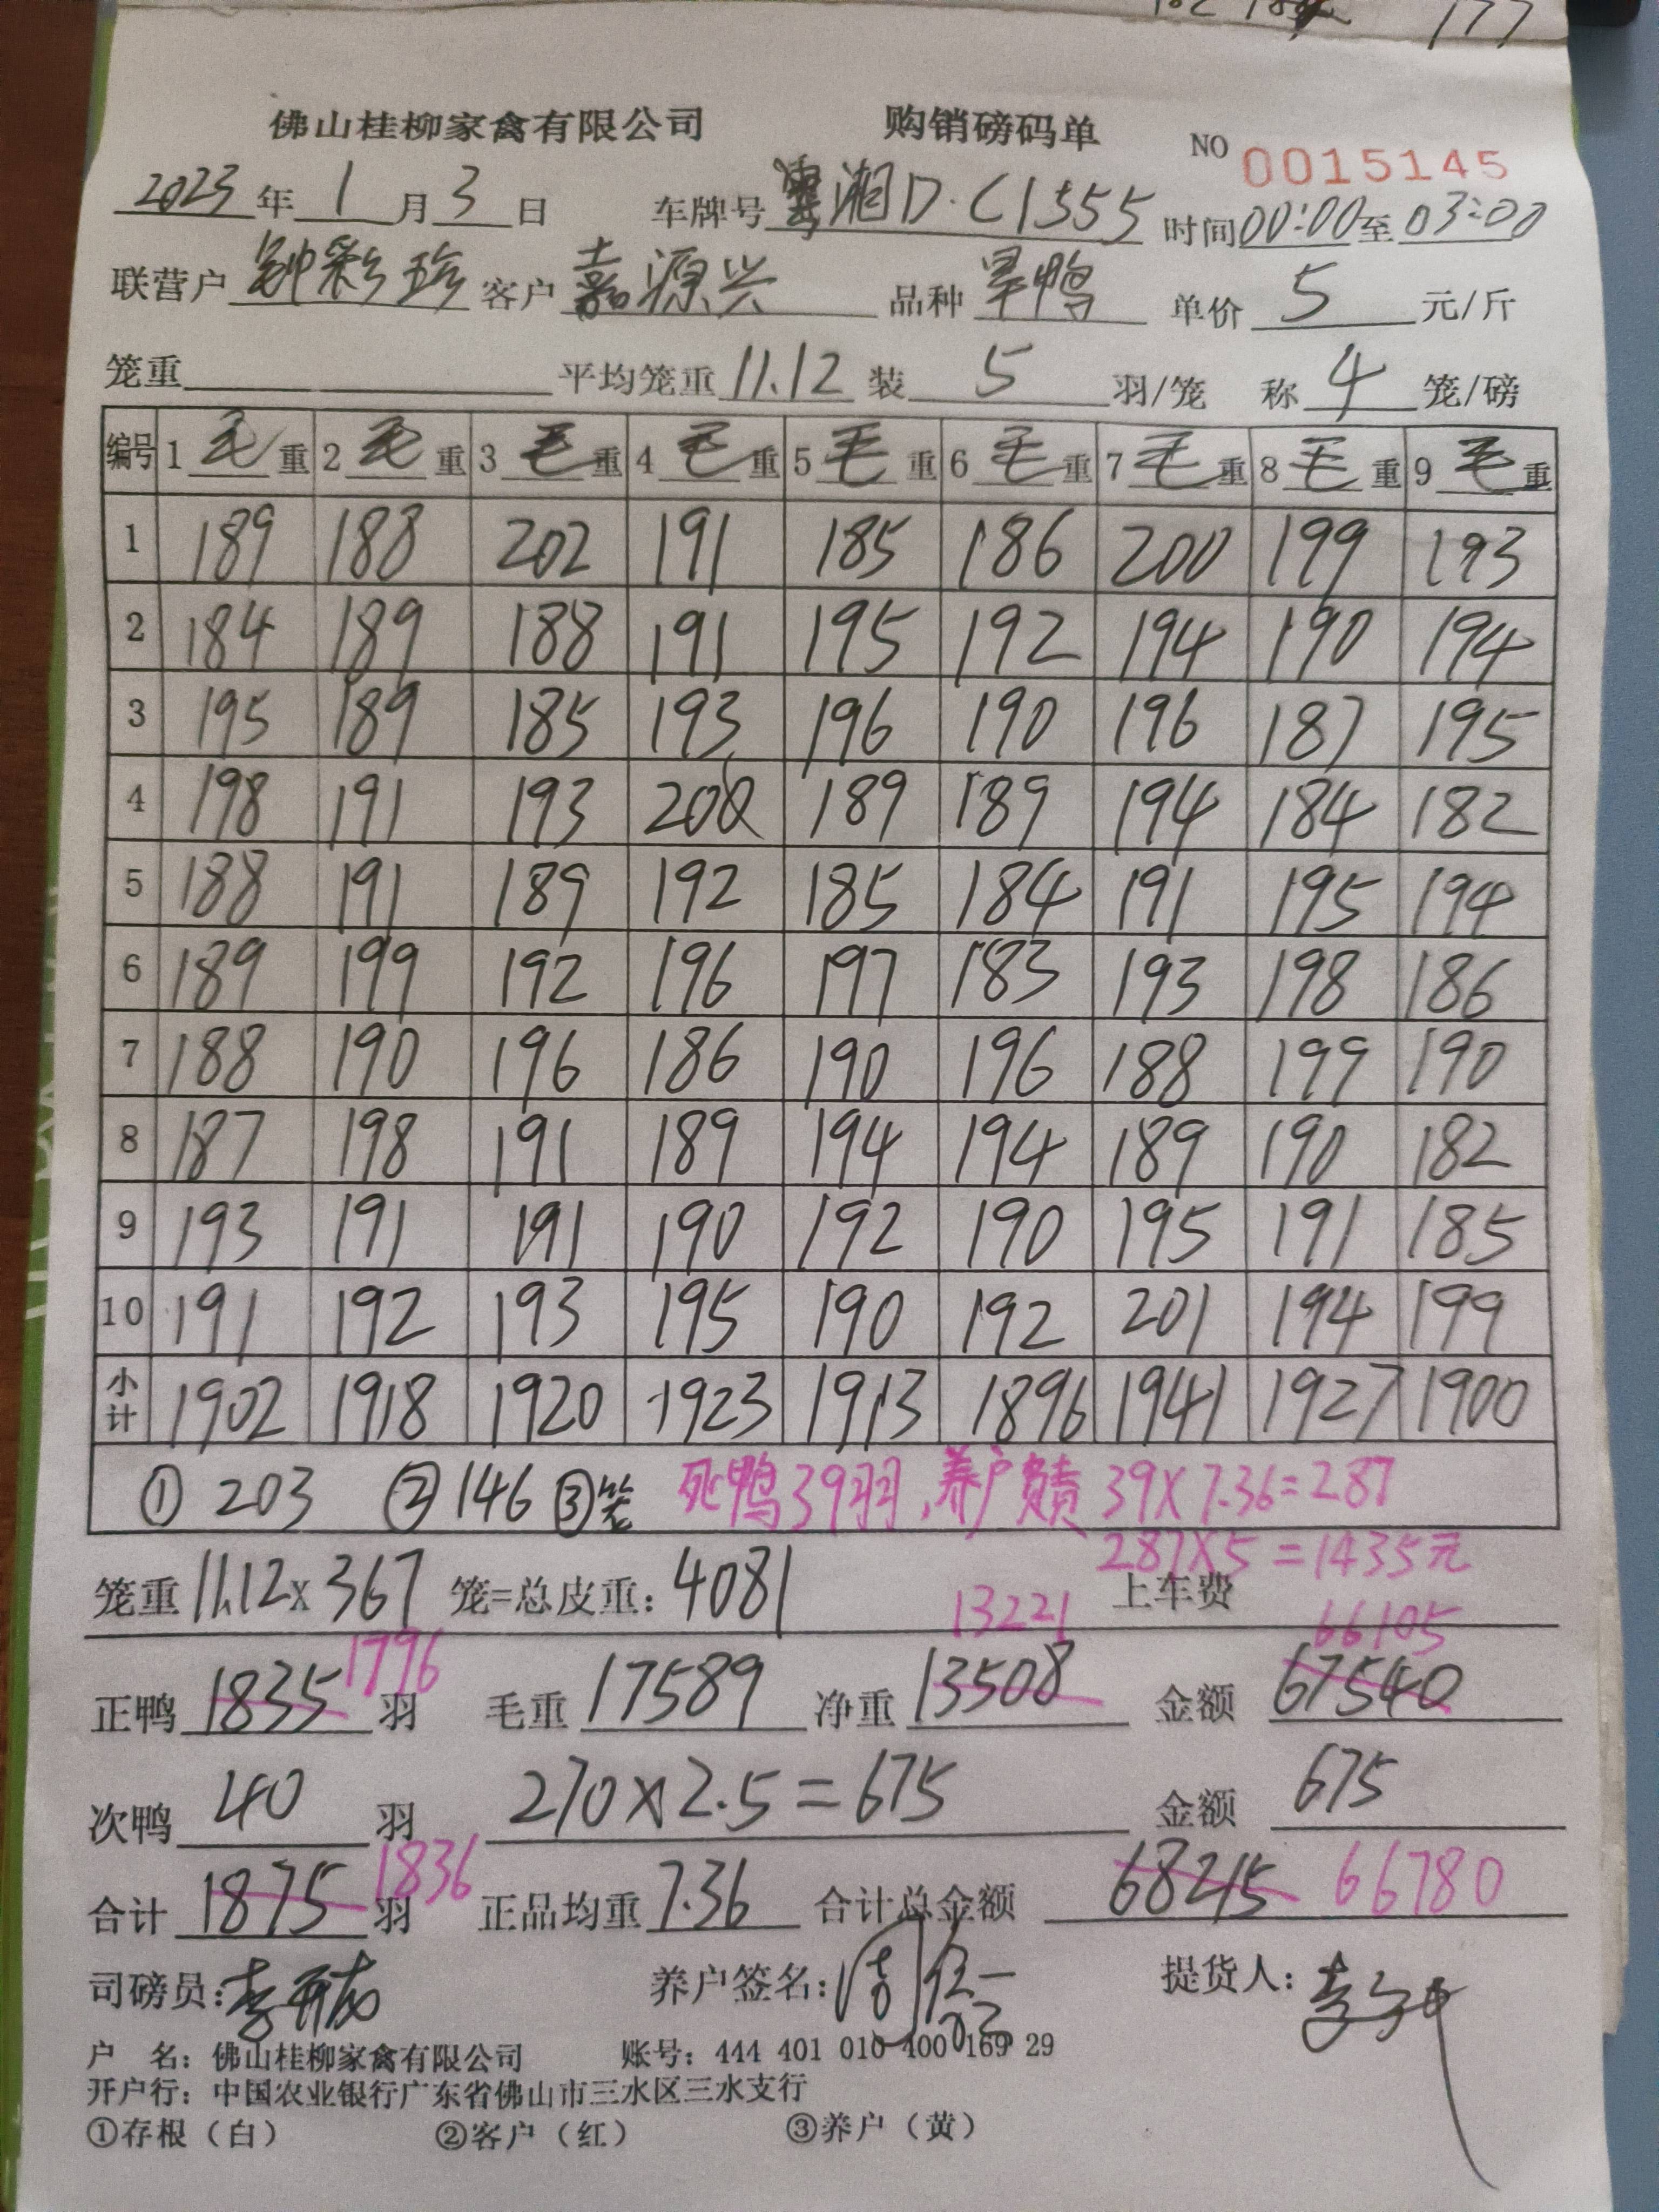 177
佛山桂柳家禽有限公司 购销磅码单 NO 0015145
2023年1月3日 车牌号 湘D·C1355 时间00:00至03:00
联营户 钟彩珍 客户 嘉源兴 品种 旱鸭 单价 5 元/斤
笼重 平均笼重 11.12 装 5 羽/笼 称 4 笼/磅
编号 1 毛 重 2 毛 重 3 毛 重 4 毛 重 5 毛 重 6 毛 重 7 毛 重 8 毛 重 9 毛 重
1 189 188 202 191 185 186 200 199 193
2 184 189 188 191 195 192 194 190 194
3 195 189 185 193 196 190 196 187 195
4 198 191 193 200 189 189 194 184 182
5 188 191 189 192 185 184 191 195 194
6 189 199 192 196 197 183 193 198 186
7 188 190 196 186 190 196 188 199 190
8 187 198 191 189 194 194 189 190 182
9 193 191 191 190 192 190 195 191 185
10 191 192 193 195 190 192 201 194 199
小计 1902 1918 1920 1923 1913 1896 1941 1927 1900
① 203 ② 146 ③笼 死鸭39羽，养户负责 39×7.36=287
287×5=1435元
笼重 11.12× 367 笼=总皮重：4081 上车费
1796 13221 66105
正鸭 1835 羽 毛重 17589 净重 13508 金额 67540
次鸭 40 羽 270×2.5=675 金额 675
合计 1875 1836 羽 正品均重 7.36 合计总金额 68215 66780
司磅员： 养户签名： 提货人：
户 名：佛山桂柳家禽有限公司 账号：444 401 010 400 169 29
开户行：中国农业银行广东省佛山市三水区三水支行
①存根（白） ②客户（红） ③养户（黄）